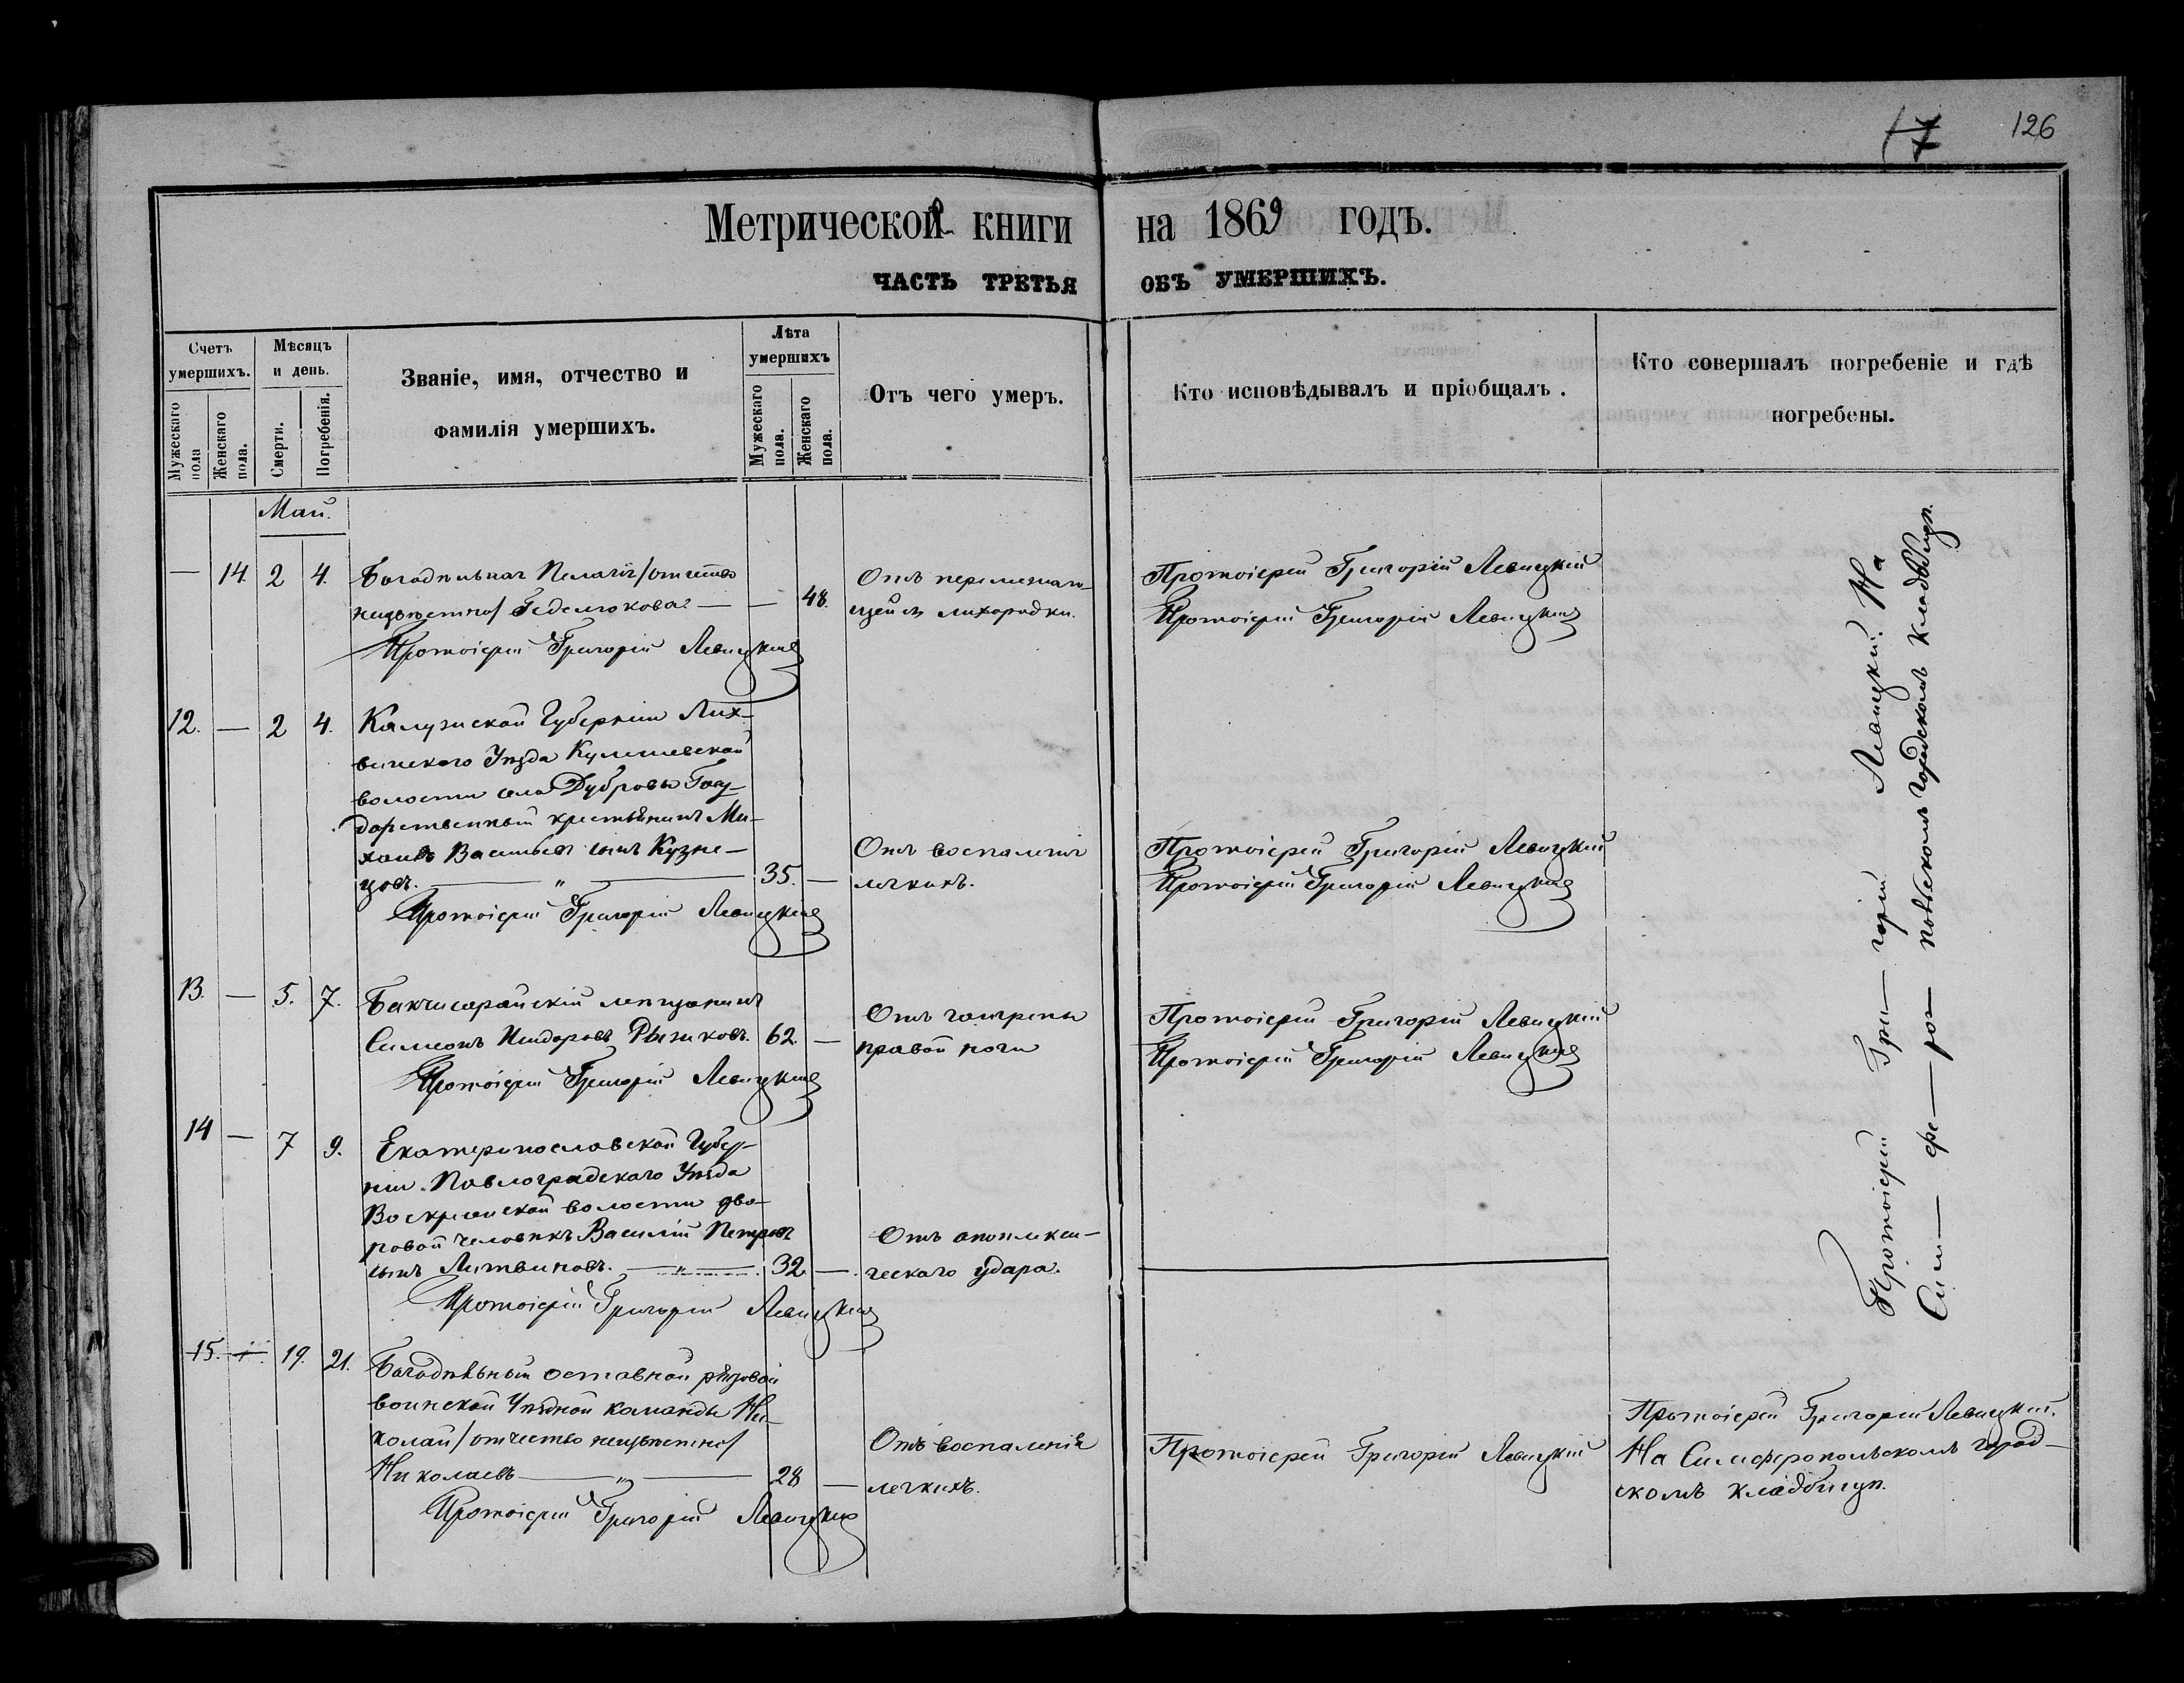 17 126
Метрической книги на 1869 годъ.
ЧАСТЬ ТРЕТЬЯ ОБЪ УМЕРШИХЪ.
Счетъ умершихъ.
Мужескаго пола
Женскаго пола.
Мѣсяцъ и день.
Смерти.
Погребенія.
Званіе, имя, отчество и
фамилія умершихъ.
Лѣта умершихъ
Мужескаго пола.
Женскаго пола.
Отъ чего умеръ.
Кто исповѣдывалъ и пріобщалъ.
Кто совершалъ погребеніе и гдѣ
погребены.
Май.
— 14. 2 4. Богадѣльная Пелагія /отчество
неизвѣстно/ — — 48.
Отъ перемежаю-
щейся лихорадки.
Протоіерей Григорій Левицкій
Протоіерей Григорій Левицкій
Протоіерей Григорій Левицкій
12. — 2 4. Калужской Губерніи Лих-
винскаго Уѣзда
волости села Дубровы Госу-
дарственный крестьянинъ Ми-
хаилъ Васильевъ сынъ Кузне-
цовъ. — „ — 35. —
Отъ воспаленія
легкихъ.
Протоіерей Григорій Левицкій
Протоіерей Григорій Левицкій
Протоіерей Григорій Левицкій
13. — 5. 7. Бахчисарайскій мещанинъ
Симеонъ Рыжковъ. 62. —
Отъ гангрены
правой ноги
Протоіерей Григорій Левицкій
Протоіерей Григорій Левицкій
Протоіерей Григорій Левицкій
14 — 7 9. Екатеринославской Губер-
ніи Павлоградскаго Уѣзда
Воскресенской волости дво-
ровой человѣкъ Василій Петровъ
сынъ Литвиновъ. — „ — 32. —
Отъ апоплекси-
ческаго удара.
Протоіерей Григорій Левицкій
Протоіерей Григорій Левицкій. На
Симферопольскомъ городскомъ кладбищѣ.
15. — 19. 21. Богадѣльный отставной рядовой
воинской Уѣздной команды Ни-
колай /отчество неизвѣстно/
Николаевъ — „ — 28 —
Отъ воспаленія
легкихъ.
Протоіерей Григорій Левицкій
Протоіерей Григорій Левицкій.
На Симферопольскомъ город-
скомъ кладбищѣ.
Протоіерей Григорій Левицкій